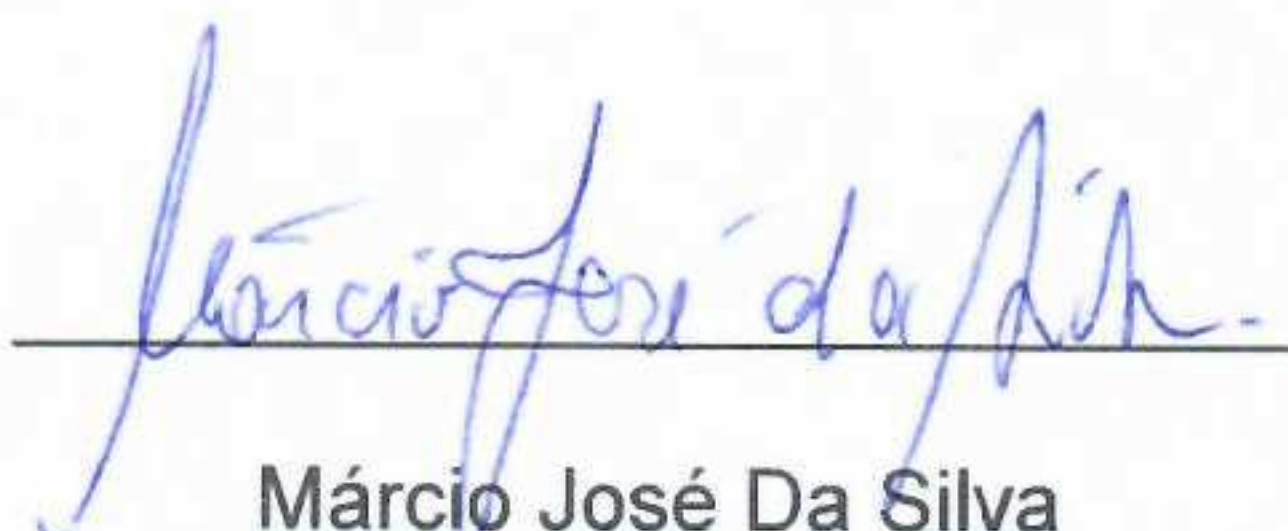 Márcio José da Silva.
Márcio José Da Silva